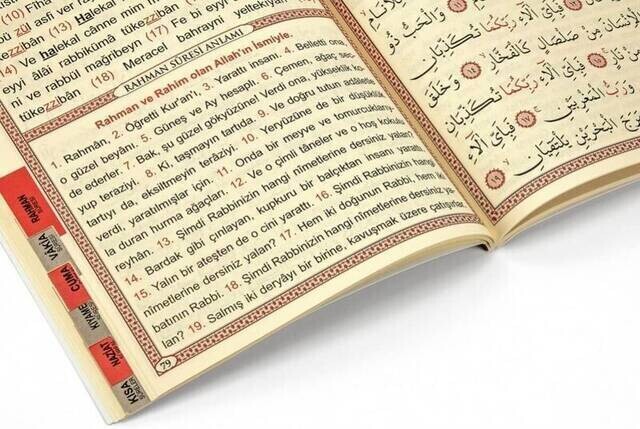 10) Fiha
asfi ver
(12)
zül
tükezzibân (13) Halekal
eyyi âlâi rabbikümâ
(14) Ve halekal cânne min
ni ve rabbül mağribeyn (17) Fe bi eyyi
tükezzibân (18) Meracel bahrayni yeltekiyân
RAHMAN SÛRESİ ANLAMI
Rahman ve Rahim olan Allah'ın ismiyle.
1. Rahmân, 2. Öğretti Kur'an'ı, 3. Yarattı insanı. 4. Belletti ona,
o güzel beyânı. 5. Güneş ve Ay hesaplı. 6. Çemen, ağaç sec-
de ederler. 7. Bak, şu güzel gökyüzüne! Verdi ona, yükseklik ko-
yup terazîyi. 8. Ki, taşmayın tartıda. 9. Ve doğru tutun adâletle
tartıyı da, eksiltmeyin terâzîyi. 10. Yeryüzüne de bir düşüklük
verdi, yaratılmışlar için. 11. Onda bir meyve ve tomurcukları-
la duran hurma ağaçları. 12. Ve o çimli tâneler ve o hoş kokulu
reyhân. 13. Şimdi Rabbinizin hangi nîmetlerine dersiniz yalan?
14. Bardak gibi çınlayan, kupkuru bir balçıktan insanı yarattı.
15. Yalın bir ateşten de o cini yarattı. 16. Şimdi Rabbinizin hangi
nîmetlerine dersiniz yalan? 17. Hem iki doğunun Rabbi, hem iki
batının Rabbi. 18. Şimdi Rabbinizin hangi nîmetlerine dersiniz ya-
lan? 19. Salmış iki deryâyı bir birine, kavuşmak üzere
79
RAHMAN SÛRESİ
VAKIA SÛRESİ
CUMA SÛRESİ
KIYAME SÛRESİ
NAZİAT SÛRESİ
KISA SÛRELER
وَالْحَبُّ ذُو
فَبِأَيِّ آلَاءِ رَبِّكُمَا تُكَذِّبَانِ
مِنْ صَلْصَالٍ كَالْفَخَّارِ وَخَلَقَ
فَبِأَيِّ آلَاءِ رَبِّكُمَا تُكَذِّبَانِ
وَرَبُّ الْمَغْرِبَيْنِ فَبِأَيِّ آلَاءِ
الْبَحْرَيْنِ يَلْتَقِيَانِ